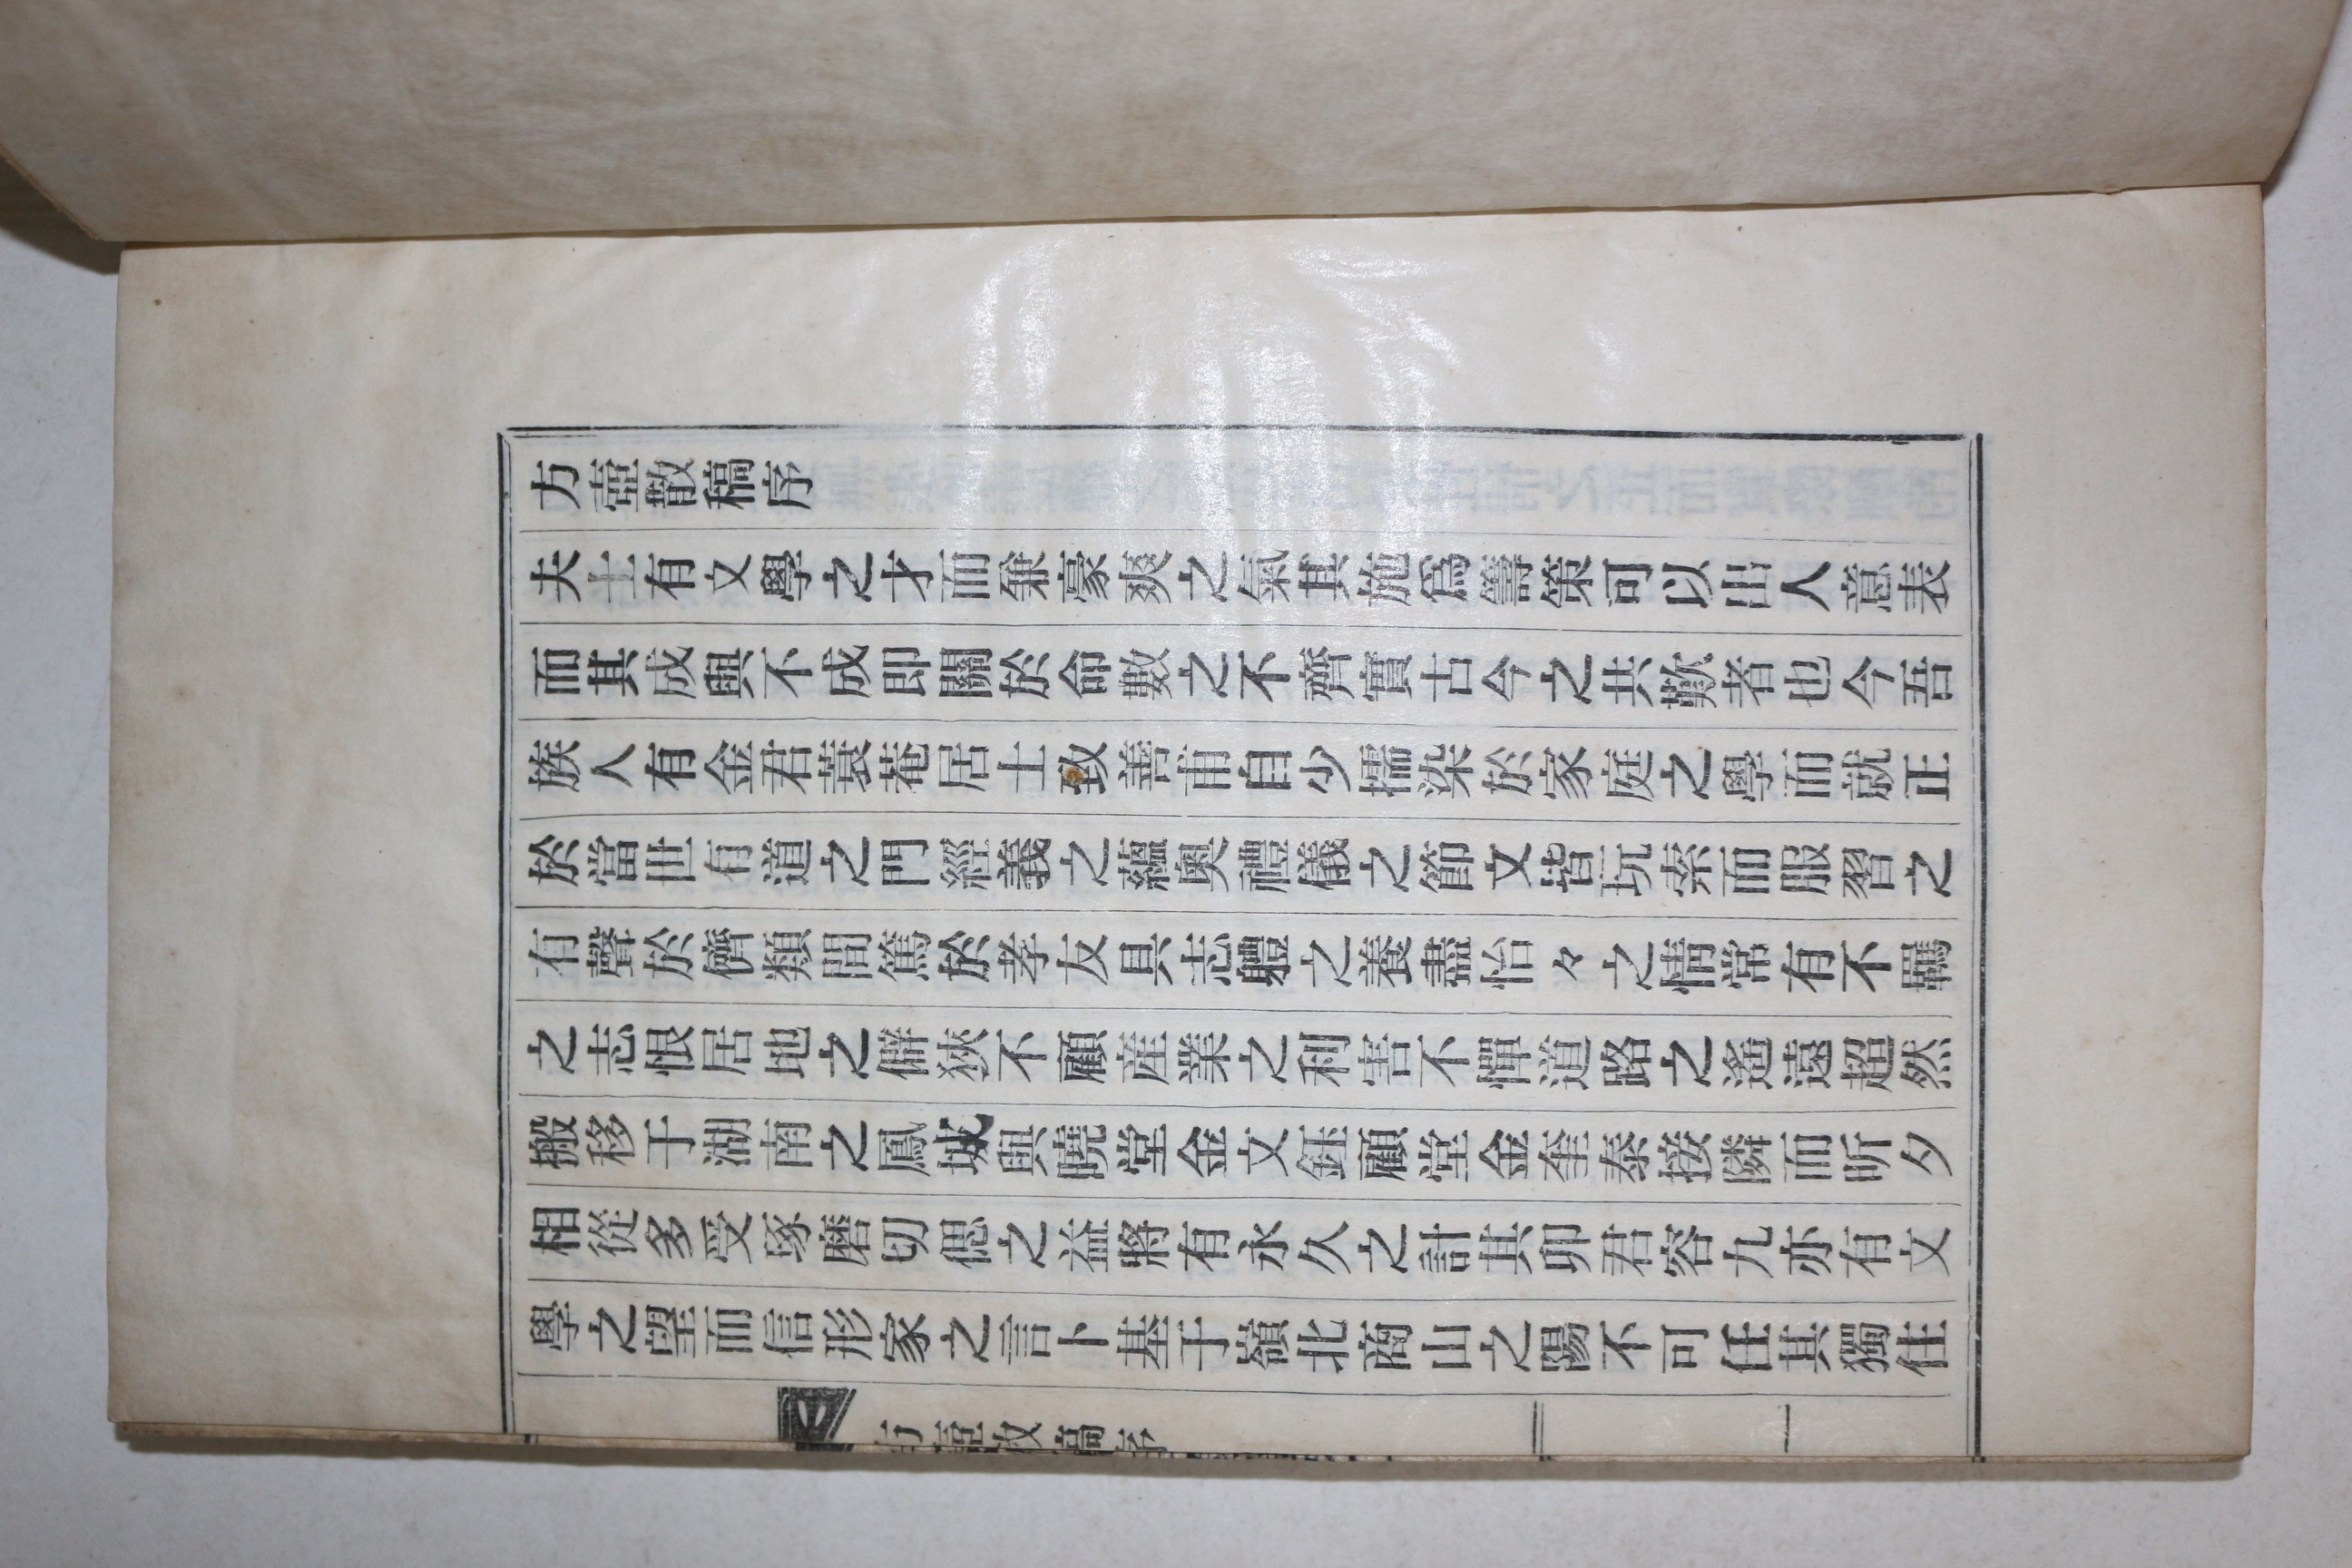 方壺散稿序
夫士有文學之才而兼豪爽之氣其施爲籌策可以出人意表
而其成與不成卽關於命數之不齊實古今之共歎者也今吾
族人有金君蓑菴居士致善甫自少擩染於家庭之學而就正
於當世有道之門經義之蘊奧禮儀之節文皆玩索而服習之
有聲於儕類間篤於孝友具志軆之養盡怡々之情常有不羈
之志恨居地之僻狹不顧産業之利害不憚道路之遙遠超然
搬移于湖南之鳳城與曉堂金文鈺顧堂金奎泰接隣而昕夕
相從多受琢磨切偲之益將有永久之計其卯君容九亦有文
學之望而信形家之言卜基于嶺北商山之陽不可任其獨住
方壺散稿序
一